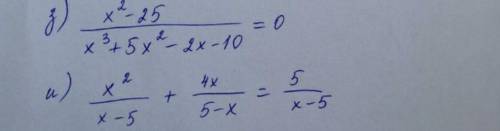 з) (x² - 25) / (x³ + 5x² - 2x - 10) = 0
и) x² / (x - 5) + 4x / (5 - x) = 5 / (x - 5)